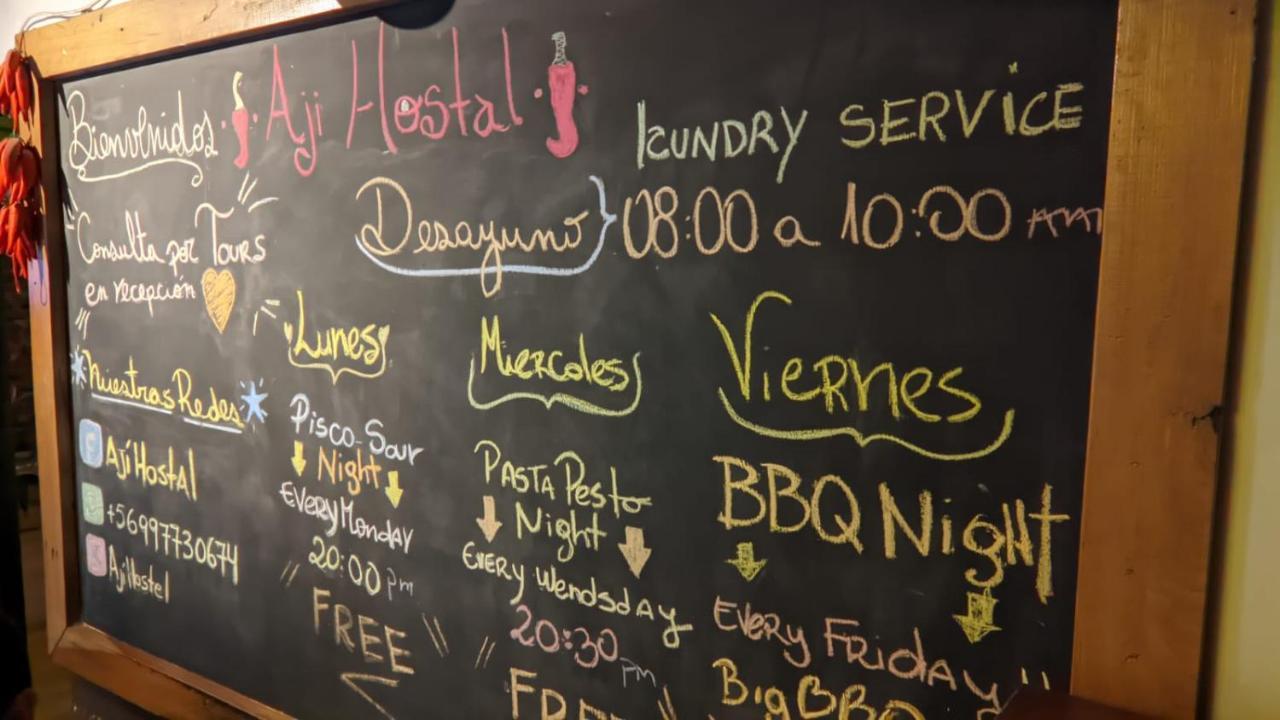 Bienvenidos Aji Hostal
LCUNDRY SERVICE
Desayuno 08:00 a 10:00 AM
Consulta por Tours
en recepción
Nuestras Redes
AjíHostAl
+56997730674
AjiHostel
Lunes
Pisco-Sour
Night
EVERY MONDAY
20:00 pm
FREE
Miercoles
PASTA Pesto
Night
EVERY WENDSDAY
20:30 pm
FREE
Viernes
BBQ Night
EVERY FRIDAY
Big BBQ